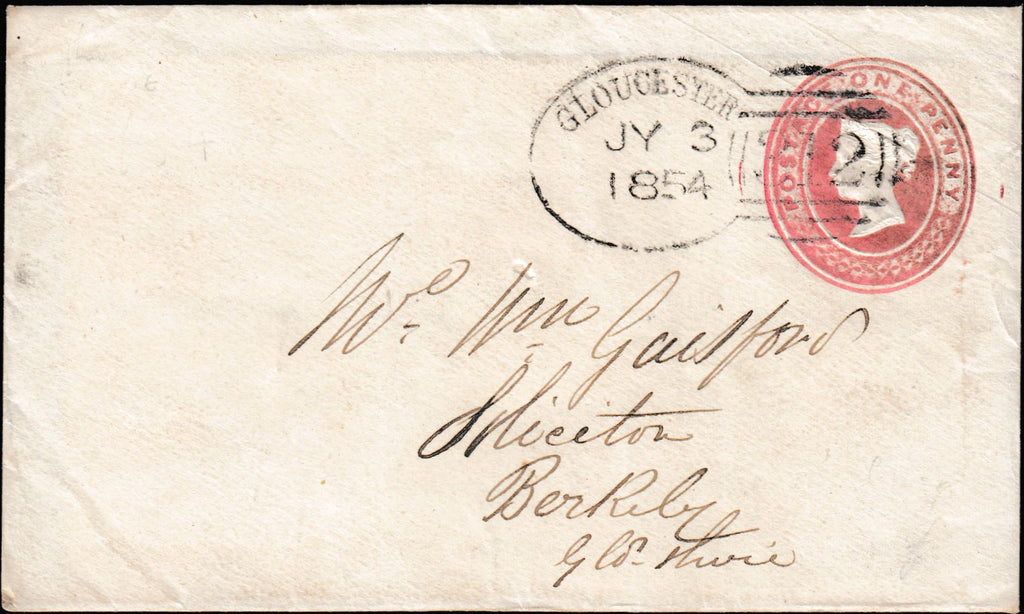 GLOUCESTER
JY 3
1854
312
POSTAGE ONE PENNY
Mr. Wm Gaisford
Solicitor
Berkely
Glo'r shire